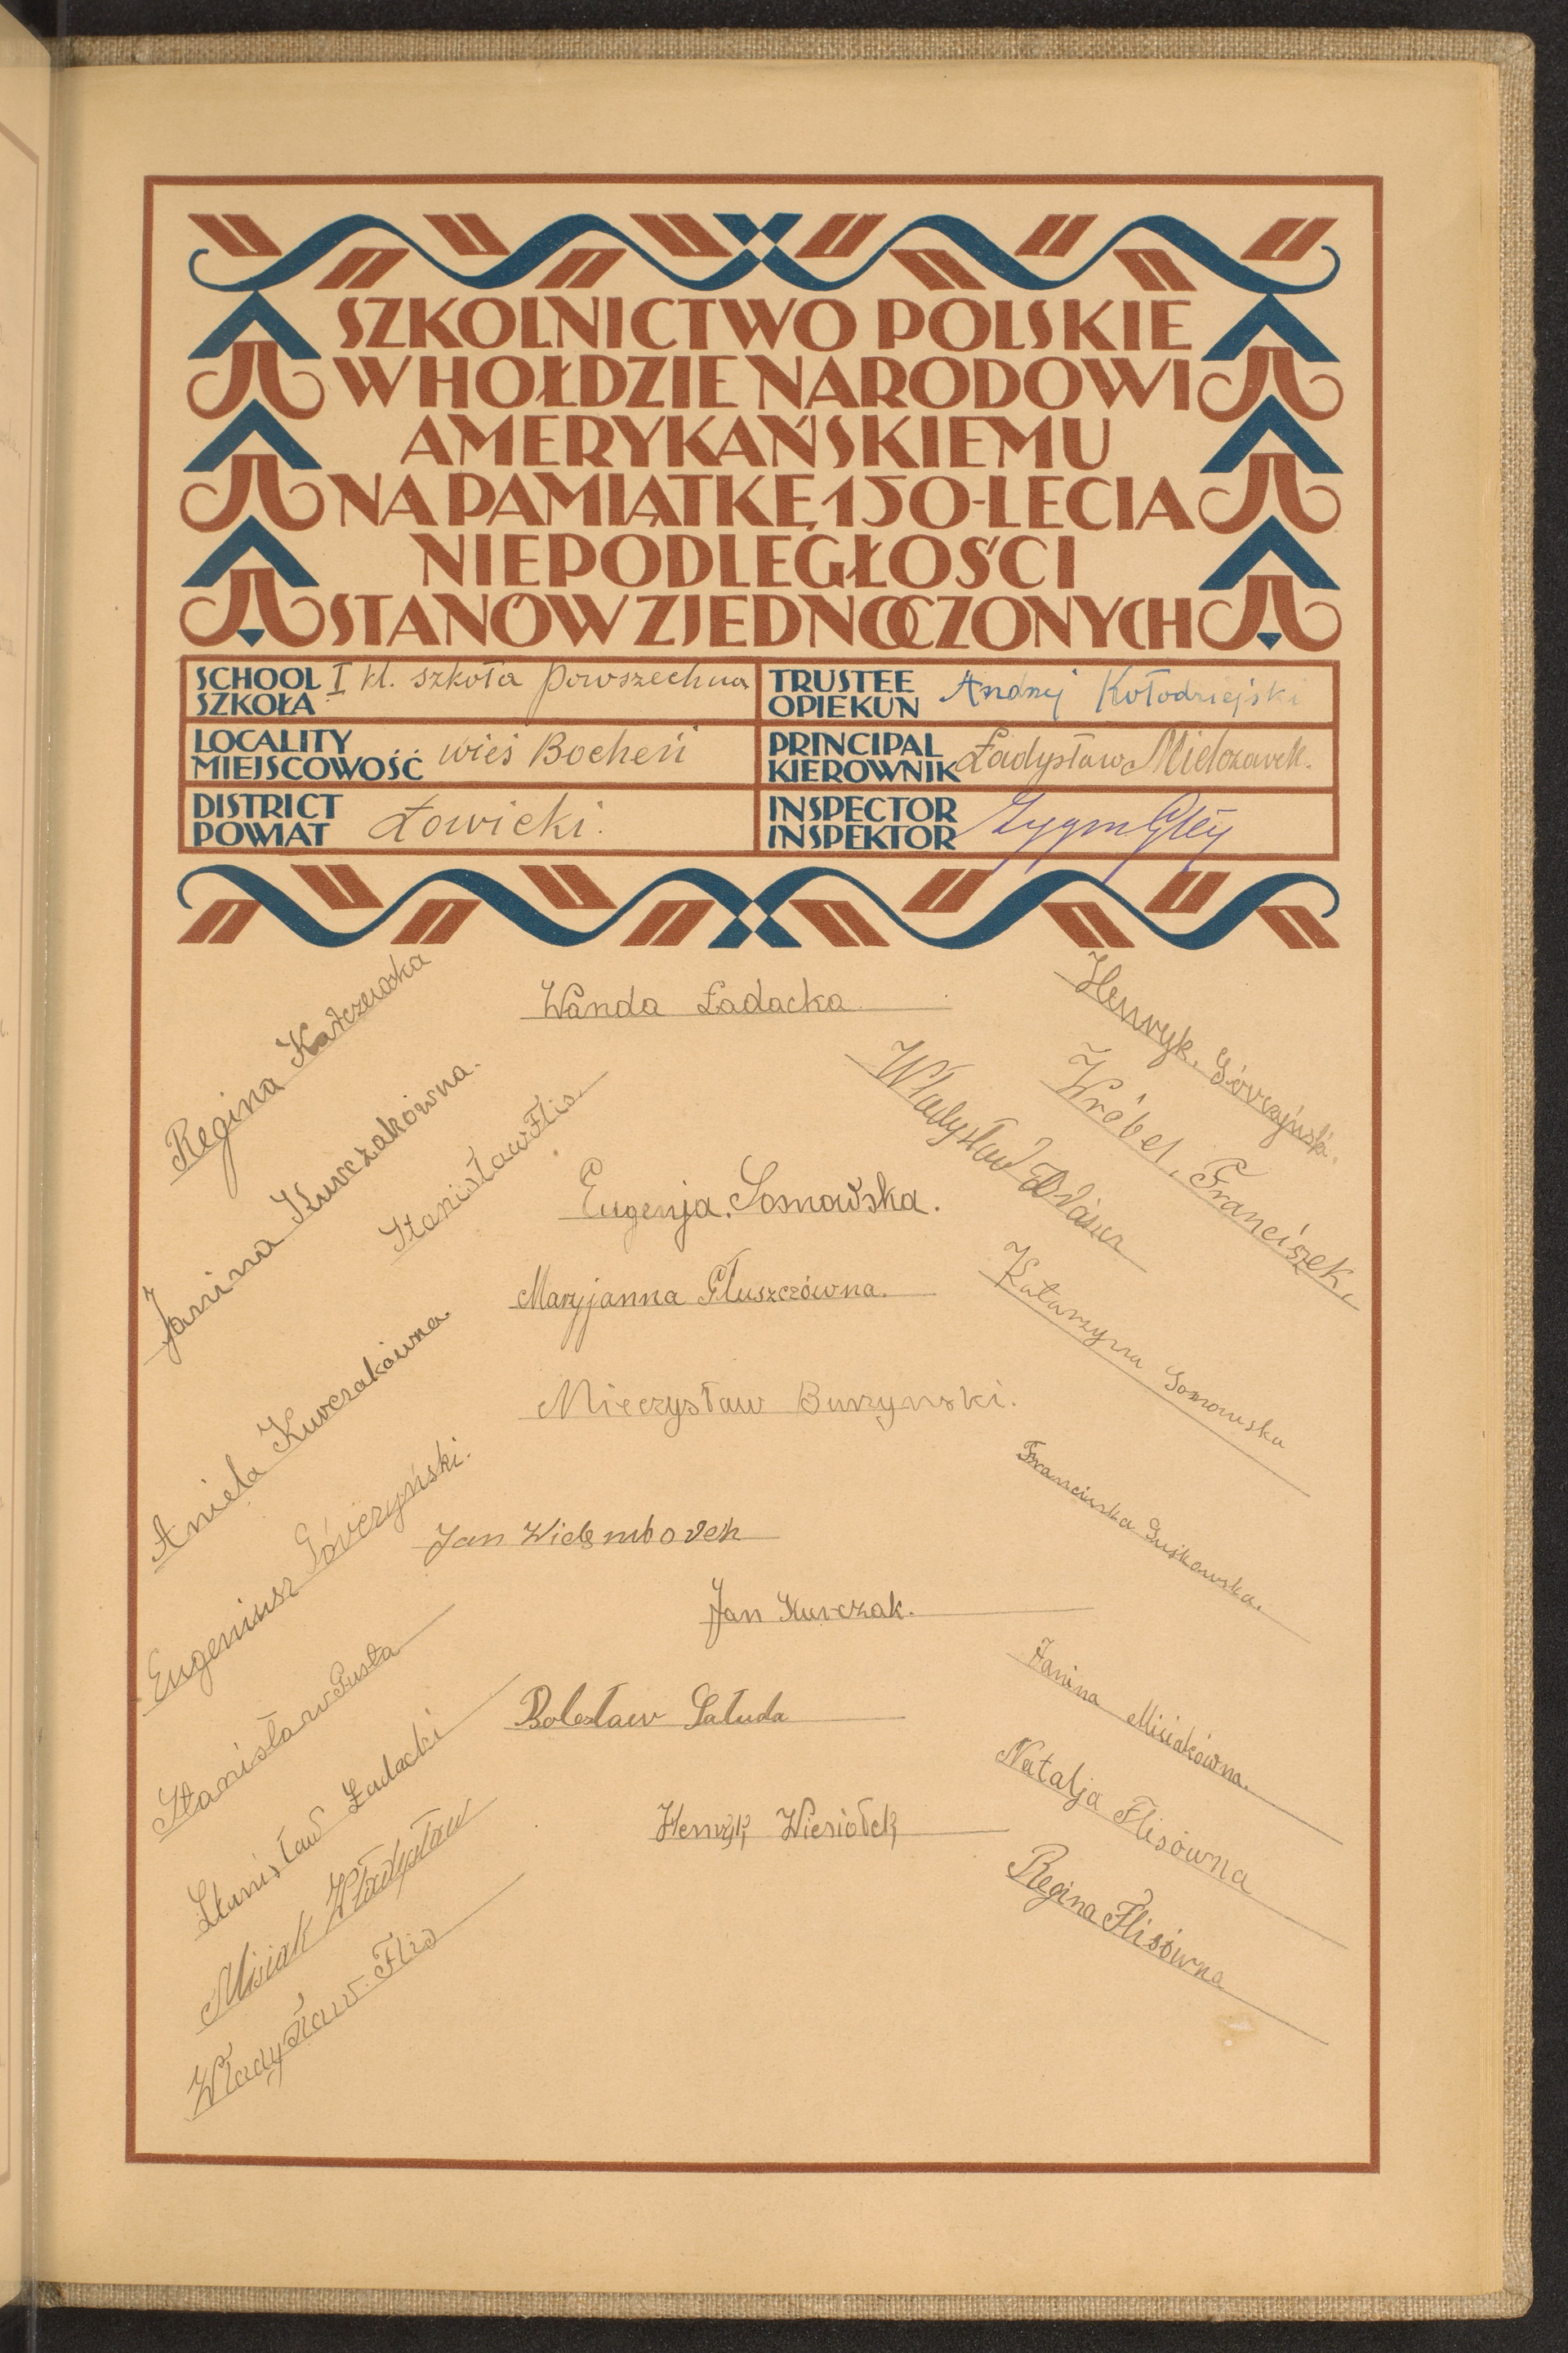 SZKOLNICTWO POLSKIE
W HOŁDZIE NARODOWI
AMERYKAŃSKIEMU
NA PAMIĄTKĘ 150-LECIA
NIEPODLEGŁOŚCI
STANÓW ZJEDNOCZONYCH
SCHOOL
SZKOŁA
I kl. szkoła powszechna
TRUSTEE
OPIEKUN
Andrzej Kołodziejski
LOCALITY
MIEJSCOWOŚĆ
wieś Bocheń
PRINCIPAL
KIEROWNIK
DISTRICT
POWIAT
Łowicki.
INSPECTOR
INSPEKTOR
Regina Kaczewska
Janina Kurczakówna.
Stanisław Flis.
Aniela Kurczakówna.
Eugeniusz Górczyński.
Stanisław Gusta
Stanisław Ładacki
Misiak Władysław
Władysław Flis
Wanda Ładacka
Eugenja Sosnowska.
Maryjanna Głuszczówna.
Mieczysław Burzynski.
Jan
Jan Kurczak.
Bolesław Sałuda
Henryk Wiesiołek
Henryk Górczyński.
Wróbel Franciszek.
Władysław
Katarzyna Sosnowska
Franciszka Guskowska.
Janina Misiakówna.
Natalja Flisówna
Regina Flisówna